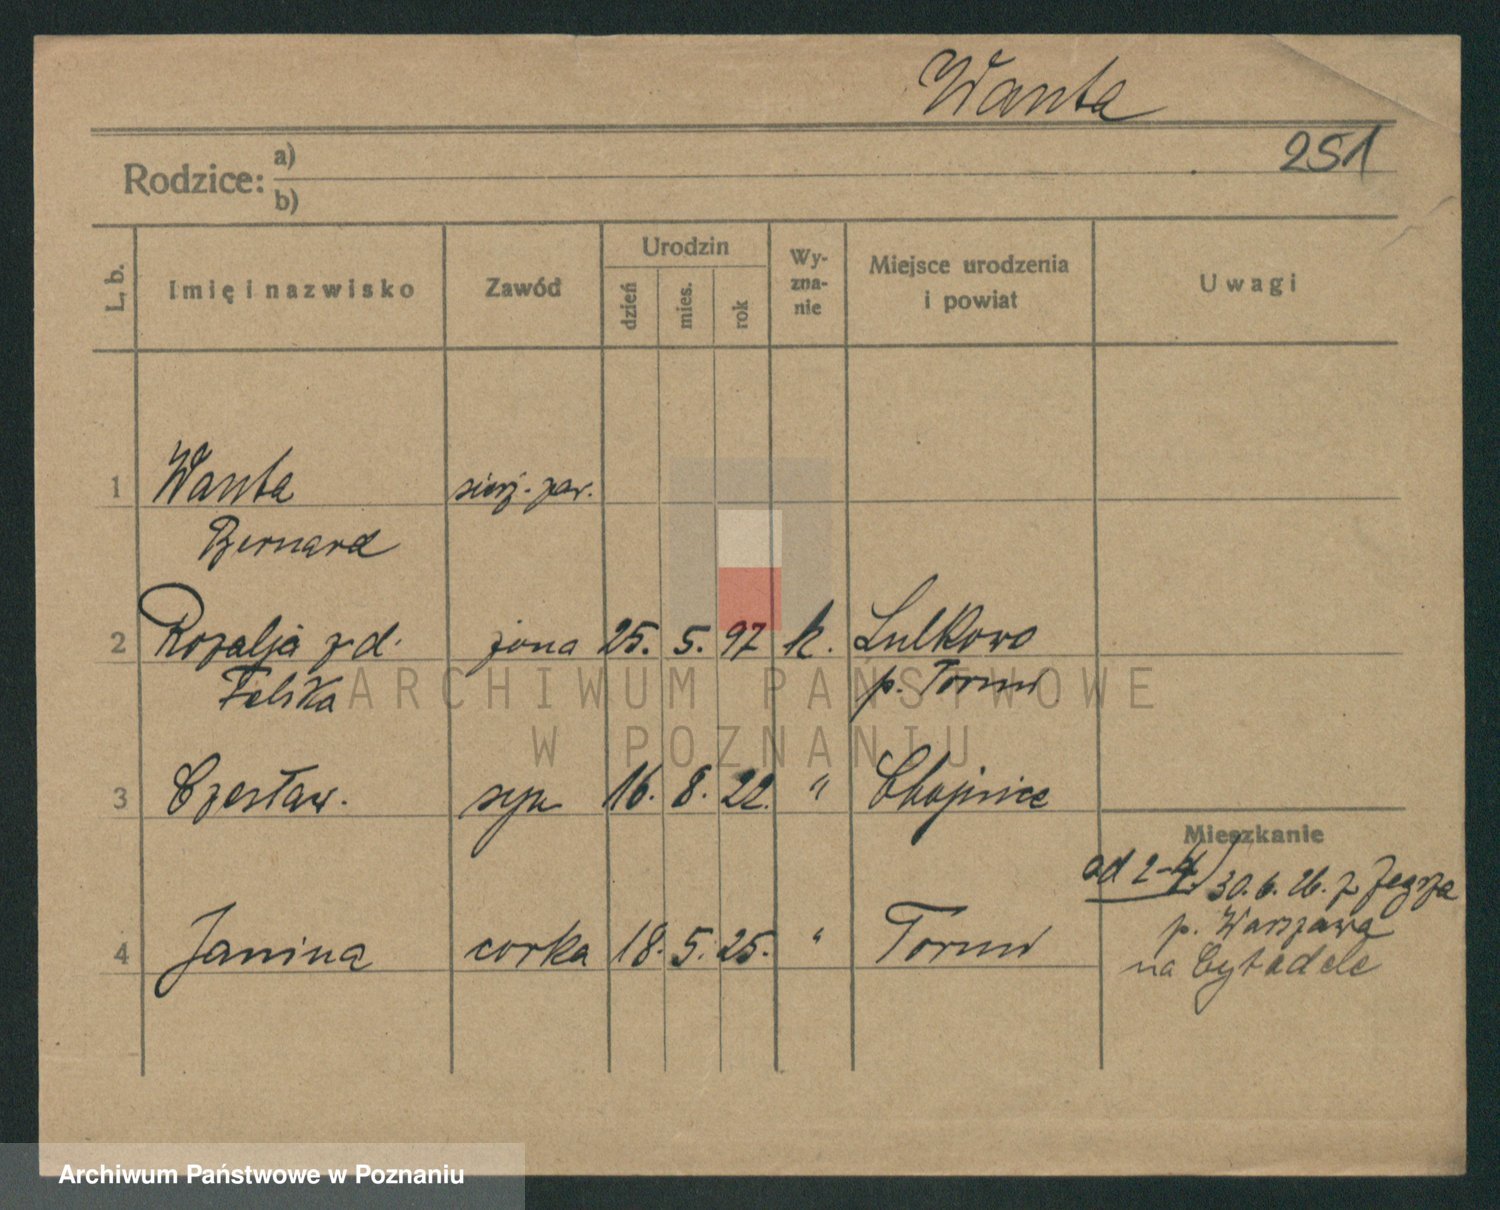 Wanta
251
Rodzice:
a)
b)
L. b.
Imię i nazwisko
Zawód
Urodzin
dzień
mies.
rok
Wy-
zna-
nie
Miejsce urodzenia
i powiat
Uwagi
1 Wanta sierż. zaw.
Bernard
2 Rozalja z d. żona 25. 5. 97 k. Lulkowo
Felska p. Toruń
3 Czesław. syn 16. 8. 22. " Chojnice
Mieszkanie
od 2-4/ 30. 6. 26. z Zegrza
p. Warszawa
na Cytadele
4 Janina corka 18. 5. 25. " Toruń
ARCHIWUM PAŃSTWOWE
W POZNANIU
Archiwum Państwowe w Poznaniu